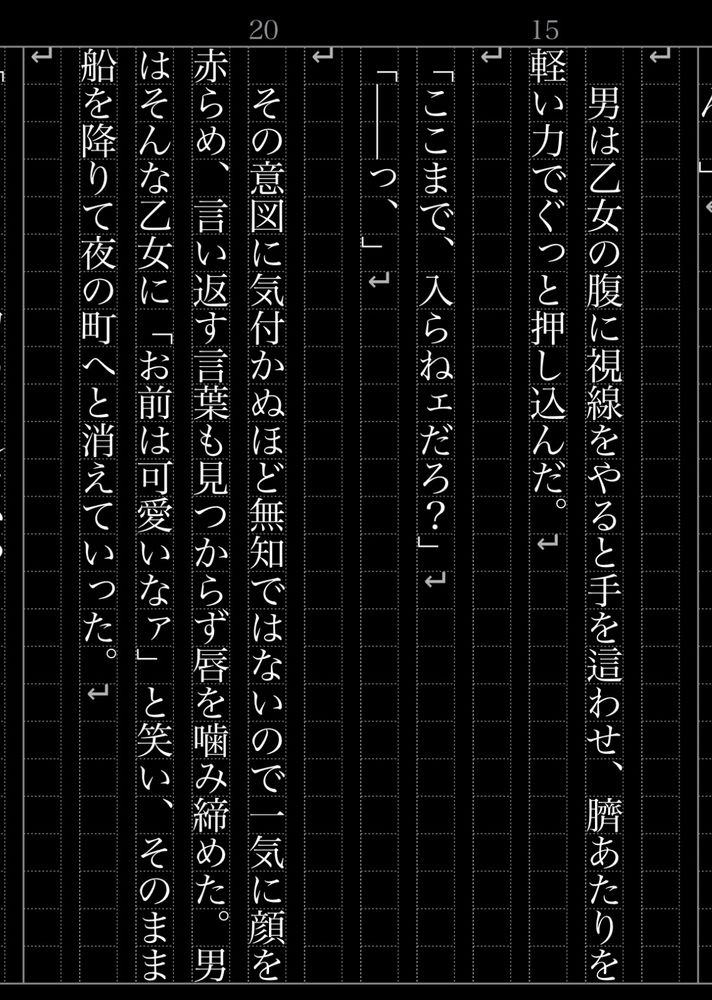 20
15
男は乙女の腹に視線をやると手を這わせ、臍あたりを
軽い力でぐっと押し込んだ。
「ここまで、入らねェだろ？」
「――っ、」
その意図に気付かぬほど無知ではないので一気に顔を
赤らめ、言い返す言葉も見つからず唇を噛み締めた。男
はそんな乙女に「お前は可愛いなァ」と笑い、そのまま
船を降りて夜の町へと消えていった。